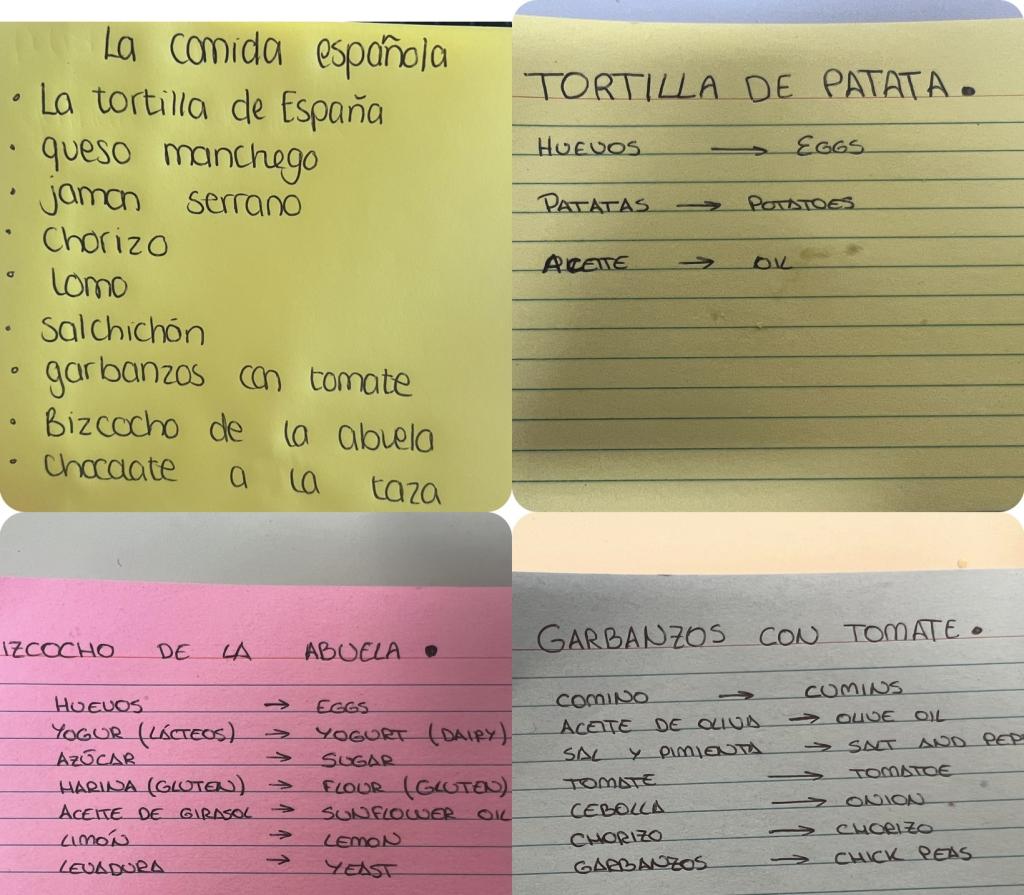 La comida española
• La tortilla de España
• queso manchego
• jamon serrano
• Chorizo
• Lomo
• Salchichón
• garbanzos con tomate
• Bizcocho de la abuela
• Chocolate a la taza
TORTILLA DE PATATA.
HUEVOS → EGGS
PATATAS → POTATOES
ACEITE → OIL
IZCOCHO DE LA ABUELA.
HUEVOS → EGGS
YOGUR (LÁCTEOS) → YOGURT (DAIRY)
AZÚCAR → SUGAR
HARINA (GLUTEN) → FLOUR (GLUTEN)
ACEITE DE GIRASOL → SUNFLOWER OIL
LIMÓN → LEMON
LEVADURA → YEAST
GARBANZOS CON TOMATE.
COMINO → CUMINS
ACEITE DE OLIVA → OLIVE OIL
SAL Y PIMIENTA → SALT AND PEP
TOMATE → TOMATOE
CEBOLLA → ONION
CHORIZO → CHORIZO
GARBANZOS → CHICK PEAS